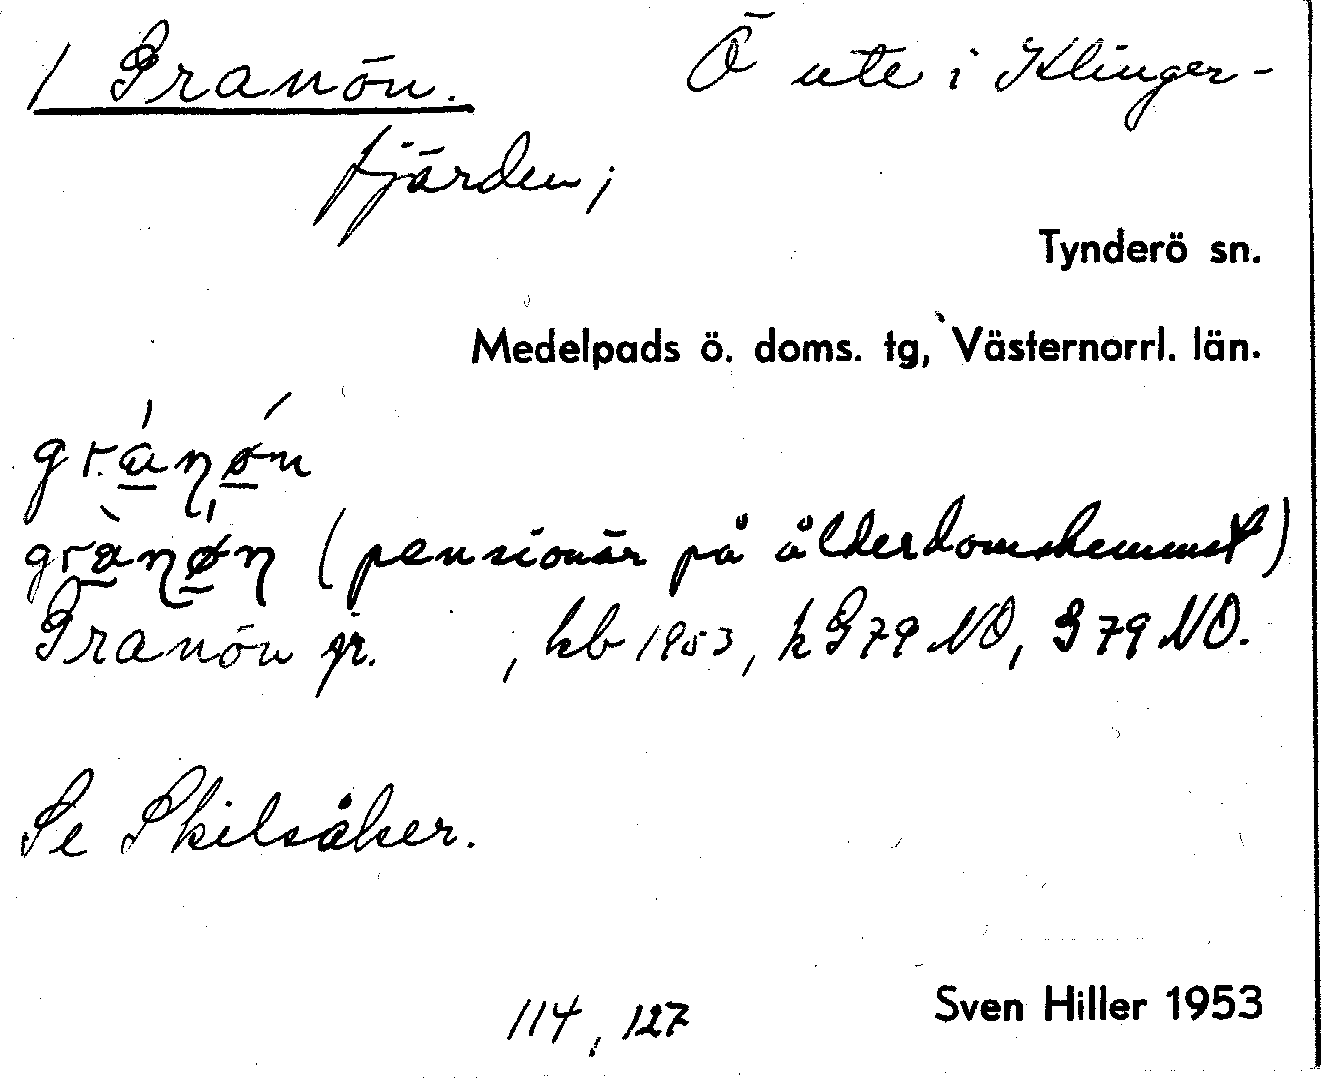 / Granön. Ö ute i Klinger-
fjärden;
Tynderö sn.
Medelpads ö. doms. tg, Västernorrl. län.
(pensionär på ålderdomshemmet)
Granön jr. , kb 1953, k G 79 NO, G 79 NO.
Se Skilsåker.
114, 127
Sven Hiller 1953